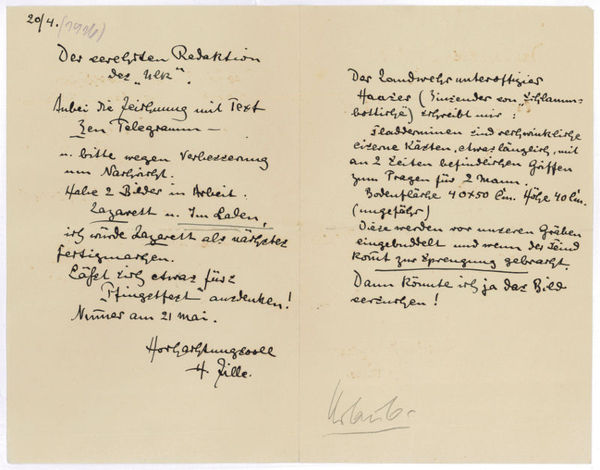 20/4. (1916)
Der verehrten Redaktion
des „Ulk“.
Anbei die Zeichnung mit Text
Zen Telegramm —
u. bitte wegen Verbesserung
um Nachricht.
Habe 2 Bilder in Arbeit.
Lazarett u. Im Laden,
ich würde Lazarett als nächstes
fertigmachen.
Läßt sich etwas fürs
„Pfingstfest“ ausdenken!
Num̄er am 21 Mai.
Hochachtungsvoll
H. Zille.
Der Landwehrunteroffizier
Haaser (Einsender von „Schlamm-
bottiche) schreibt mir:
Fladderminen sind rechwinkliche
eiserne Kästen, etwas länglich, mit
an 2 Seiten befindlichen Griffen
zum Tragen für 2 Mann.
Bodenfläche 40x50 Ctm. Höhe 40 Ctm.
(ungefähr)
Diese werden vor unseren Gräben
eingebuddelt und wenn der Feind
kom̄t zur Sprengung gebracht.
Dann könnte ich ja das Bild
versuchen!